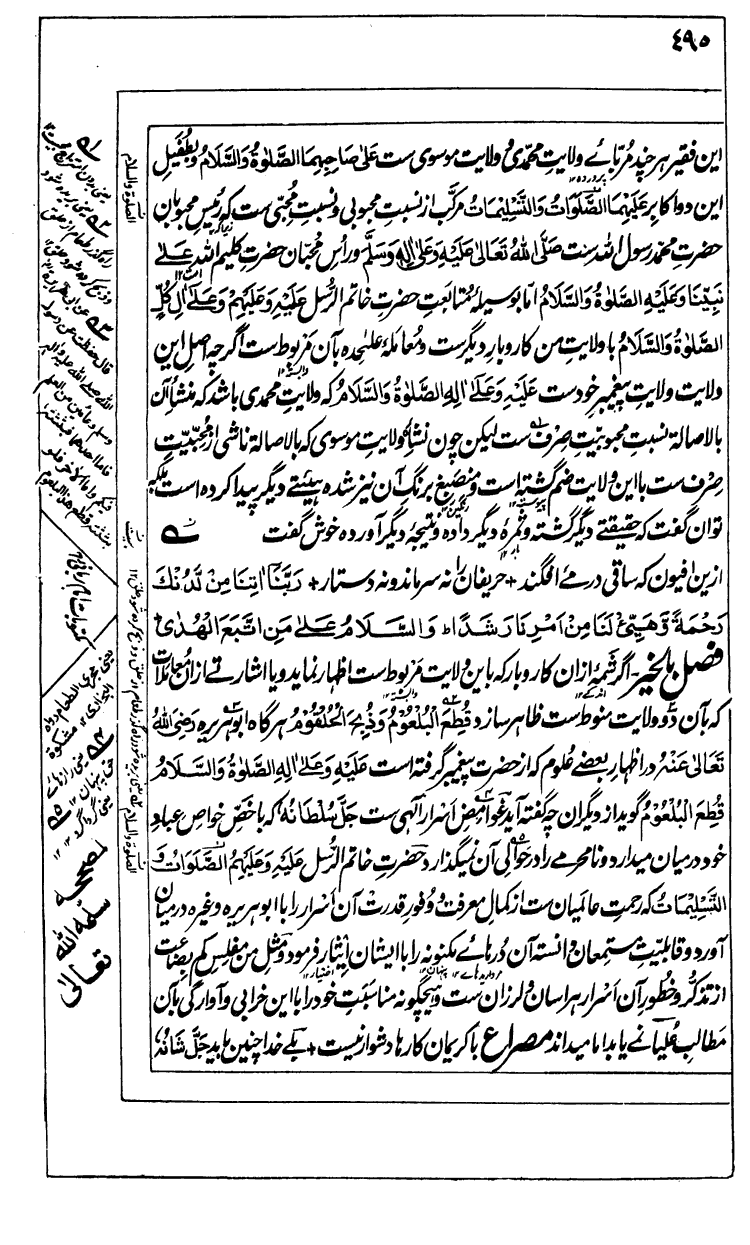 ٤٩٥
این فقیر هر چند مُربّائے ولایتِ محمدی و ولایت موسوی ست عَلیٰ صَاحِبِهِمَا الصَّلٰوةُ وَالسَّلَامُ و بطُفَیلِ
این دو اکابر عَلَیْهِمَا الصَّلَوَاتُ وَالتَّسْلِیمَاتُ مرکّب از نسبت محبوبی و نسبتِ مُحبّی ست که رئیس محبوبان
حضرت محمد رسول الله ست صَلَّی اللهُ تَعَالٰی عَلَیْهِ وَعَلیٰ اٰلِهٖ وَسَلَّمَ و رأس مُحبّان حضرتِ کلیم الله عَلیٰ
نَبِیِّنَا وَعَلَیْهِ الصَّلٰوةُ وَالسَّلَامُ اما بوسیلهٔ مُتابعتِ حضرتِ خاتم الرُّسل عَلَیْهِ وَعَلَیْهِمْ وَعَلیٰ اٰلِ کُلٍّ
الصَّلٰوةُ وَالسَّلَامُ با ولایتِ من کاروبار دیگرست و مُعاملهٔ علیٰحده بآن مربوط ست اگرچه اصل این
ولایت ولایتِ پیغمبرِ خودست عَلَیْهِ وَعَلیٰ اٰلِهِ الصَّلٰوةُ وَالسَّلَامُ که ولایتِ محمدی باشد که منشأ آن
بالاصاله نسبتِ محبوبیتِ صرف ست لیکن چون نشأ ولایتِ موسوی که بالاصالة ناشی از محبّیّتِ
صِرف ست با این ولایت ضم گشته است و منصبغ برنگِ آن نیز شده هیئتے دیگر پیدا کرده است بلکه
توان گفت که حقیقتے دیگر گشته و ثمرهٔ دیگر داده و نتیجهٔ دیگر آورده خوش گفت
ازین افیون که ساقی در مے افگند + حریفان را نه سر ماند و نه دستار + رَبَّنَا اٰتِنَا مِنْ لَدُنْكَ
رَحْمَةً وَّهَیِّئْ لَنَا مِنْ اَمْرِنَا رَشَدًا ط وَالسَّلَامُ عَلیٰ مَنِ اتَّبَعَ الْهُدیٰ
فصل بالخیر - اگر شمّهٔ ازان کاروبار که باین ولایت مربوط ست اظهار نماید و یا اشارتے ازان مُعاملات
که بآن دو ولایت منوط ست ظاهر سازد قُطِعَ الْبُلْعُوْمُ وَ ذُبِحَ الْحُلْقُوْمُ هرگاه ابو هریره رَضِیَ اللهُ
تَعَالٰی عَنْهُ در اظهار بعضے علوم که از حضرت پیغمبر گرفته است عَلَیْهِ وَعَلیٰ اٰلِهِ الصَّلٰوةُ وَالسَّلَامُ
قُطِعَ الْبُلْعُوْمُ گوید از دیگران چه گفته آید غوامضِ اَسرارِ الٰهی ست جَلَّ سُلْطَانُهٗ که باخصّ خواصِ عبادِ
خود درمیان میدارد و نامحرمے را در حوالیِ آن نمیگذارد حضرتِ خاتم الرُّسل عَلَیْهِ وَعَلَیْهِمُ الصَّلَوَاتُ وَ
التَّسْلِیْمَاتُ که رحمتِ عالمیان ست از کمالِ معرفت و وفورِ قدرت آن اَسرار را با ابو هریره و غیره درمیان
آورد و قابلیتِ مستمعان دانسته آن دُرهائے مکنونه را با ایشان ایثار فرمود و مثل من مفلس کم بضاعت
از تذکّر و خطورِ آن اَسرار هراسان و لرزان ست و هیچگونه مناسبتِ خود را با این خرابی و آوارگی بآن
مطالبِ عُلیا نمے یابد اما میداند مصراع با کریمان کارها دشوار نیست + بلے خدا چنین باید جَلَّ شَانُهٗ
الصلوة والسلام
بیت
الصلوة والسلام
مکتوبات امام ربانی
قال حفظت عن رسول
الله صلی الله علیه واله
وسلم وعائین من العلم
فاما احدهما فبثثته
فیکم واما الآخر فلو
بثثته قطع هذا البلعوم
یعنی مجری الطعام رواه
البخاری ۱۲ مشکوة
مصححه
سلمه الله
تعالیٰ